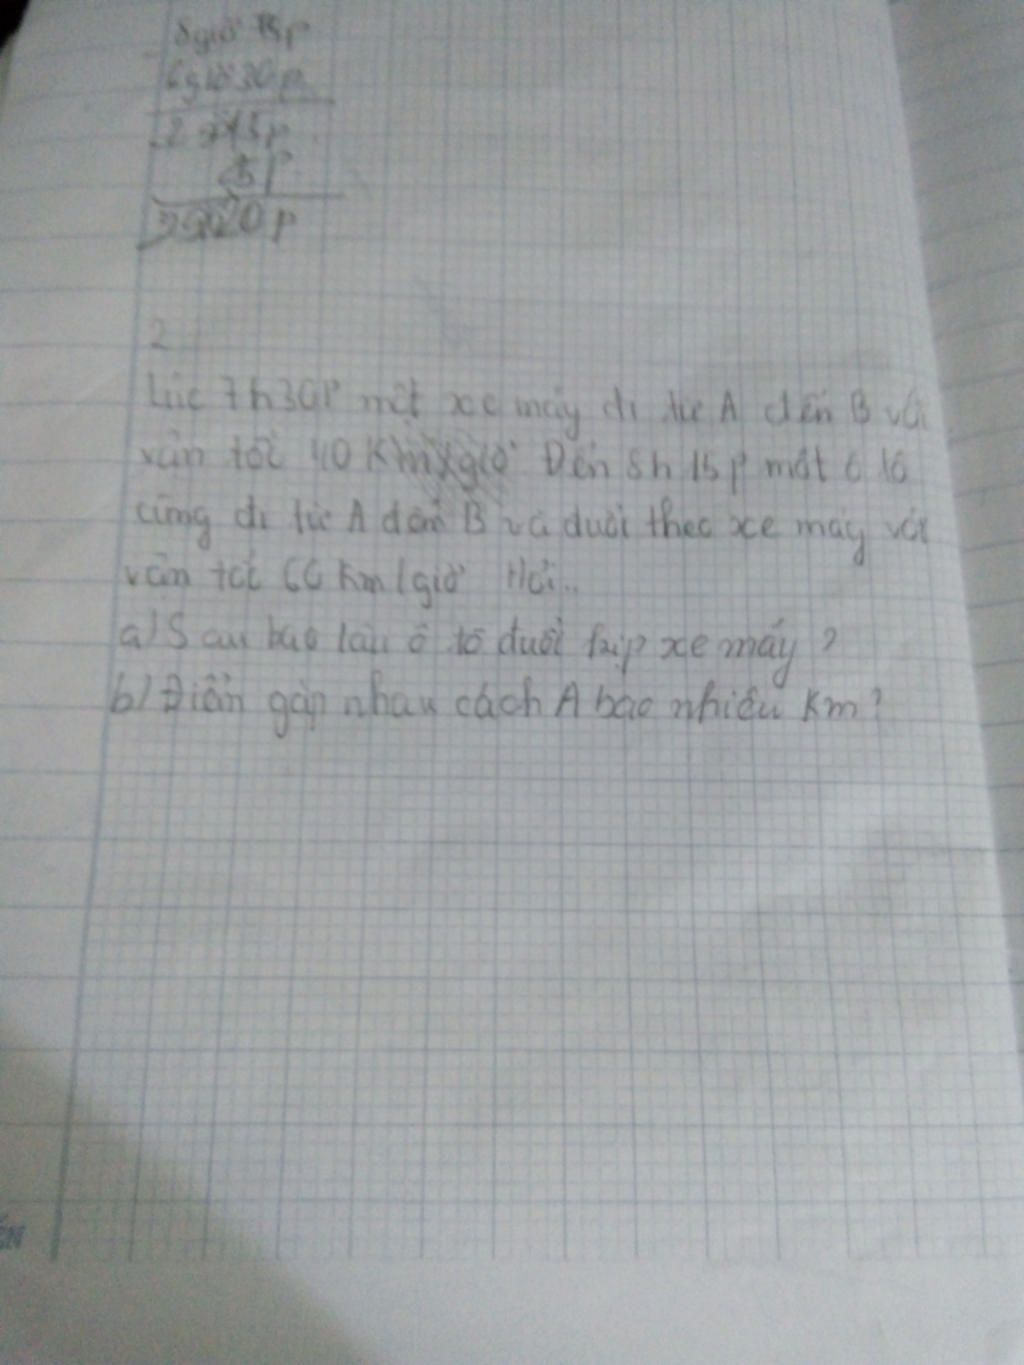 6giờ 30p
2
Lúc 7h30P một xe máy đi từ A đến B với
vận tốc 40 Km/giờ Đến 8h 15p một ô tô
cũng đi từ A đến B và đuổi theo xe máy với
vận tốc Km/giờ Hỏi..
a) Sau bao lâu ô tô đuổi kịp xe máy?
b) Điểm gặp nhau cách A bao nhiêu Km?